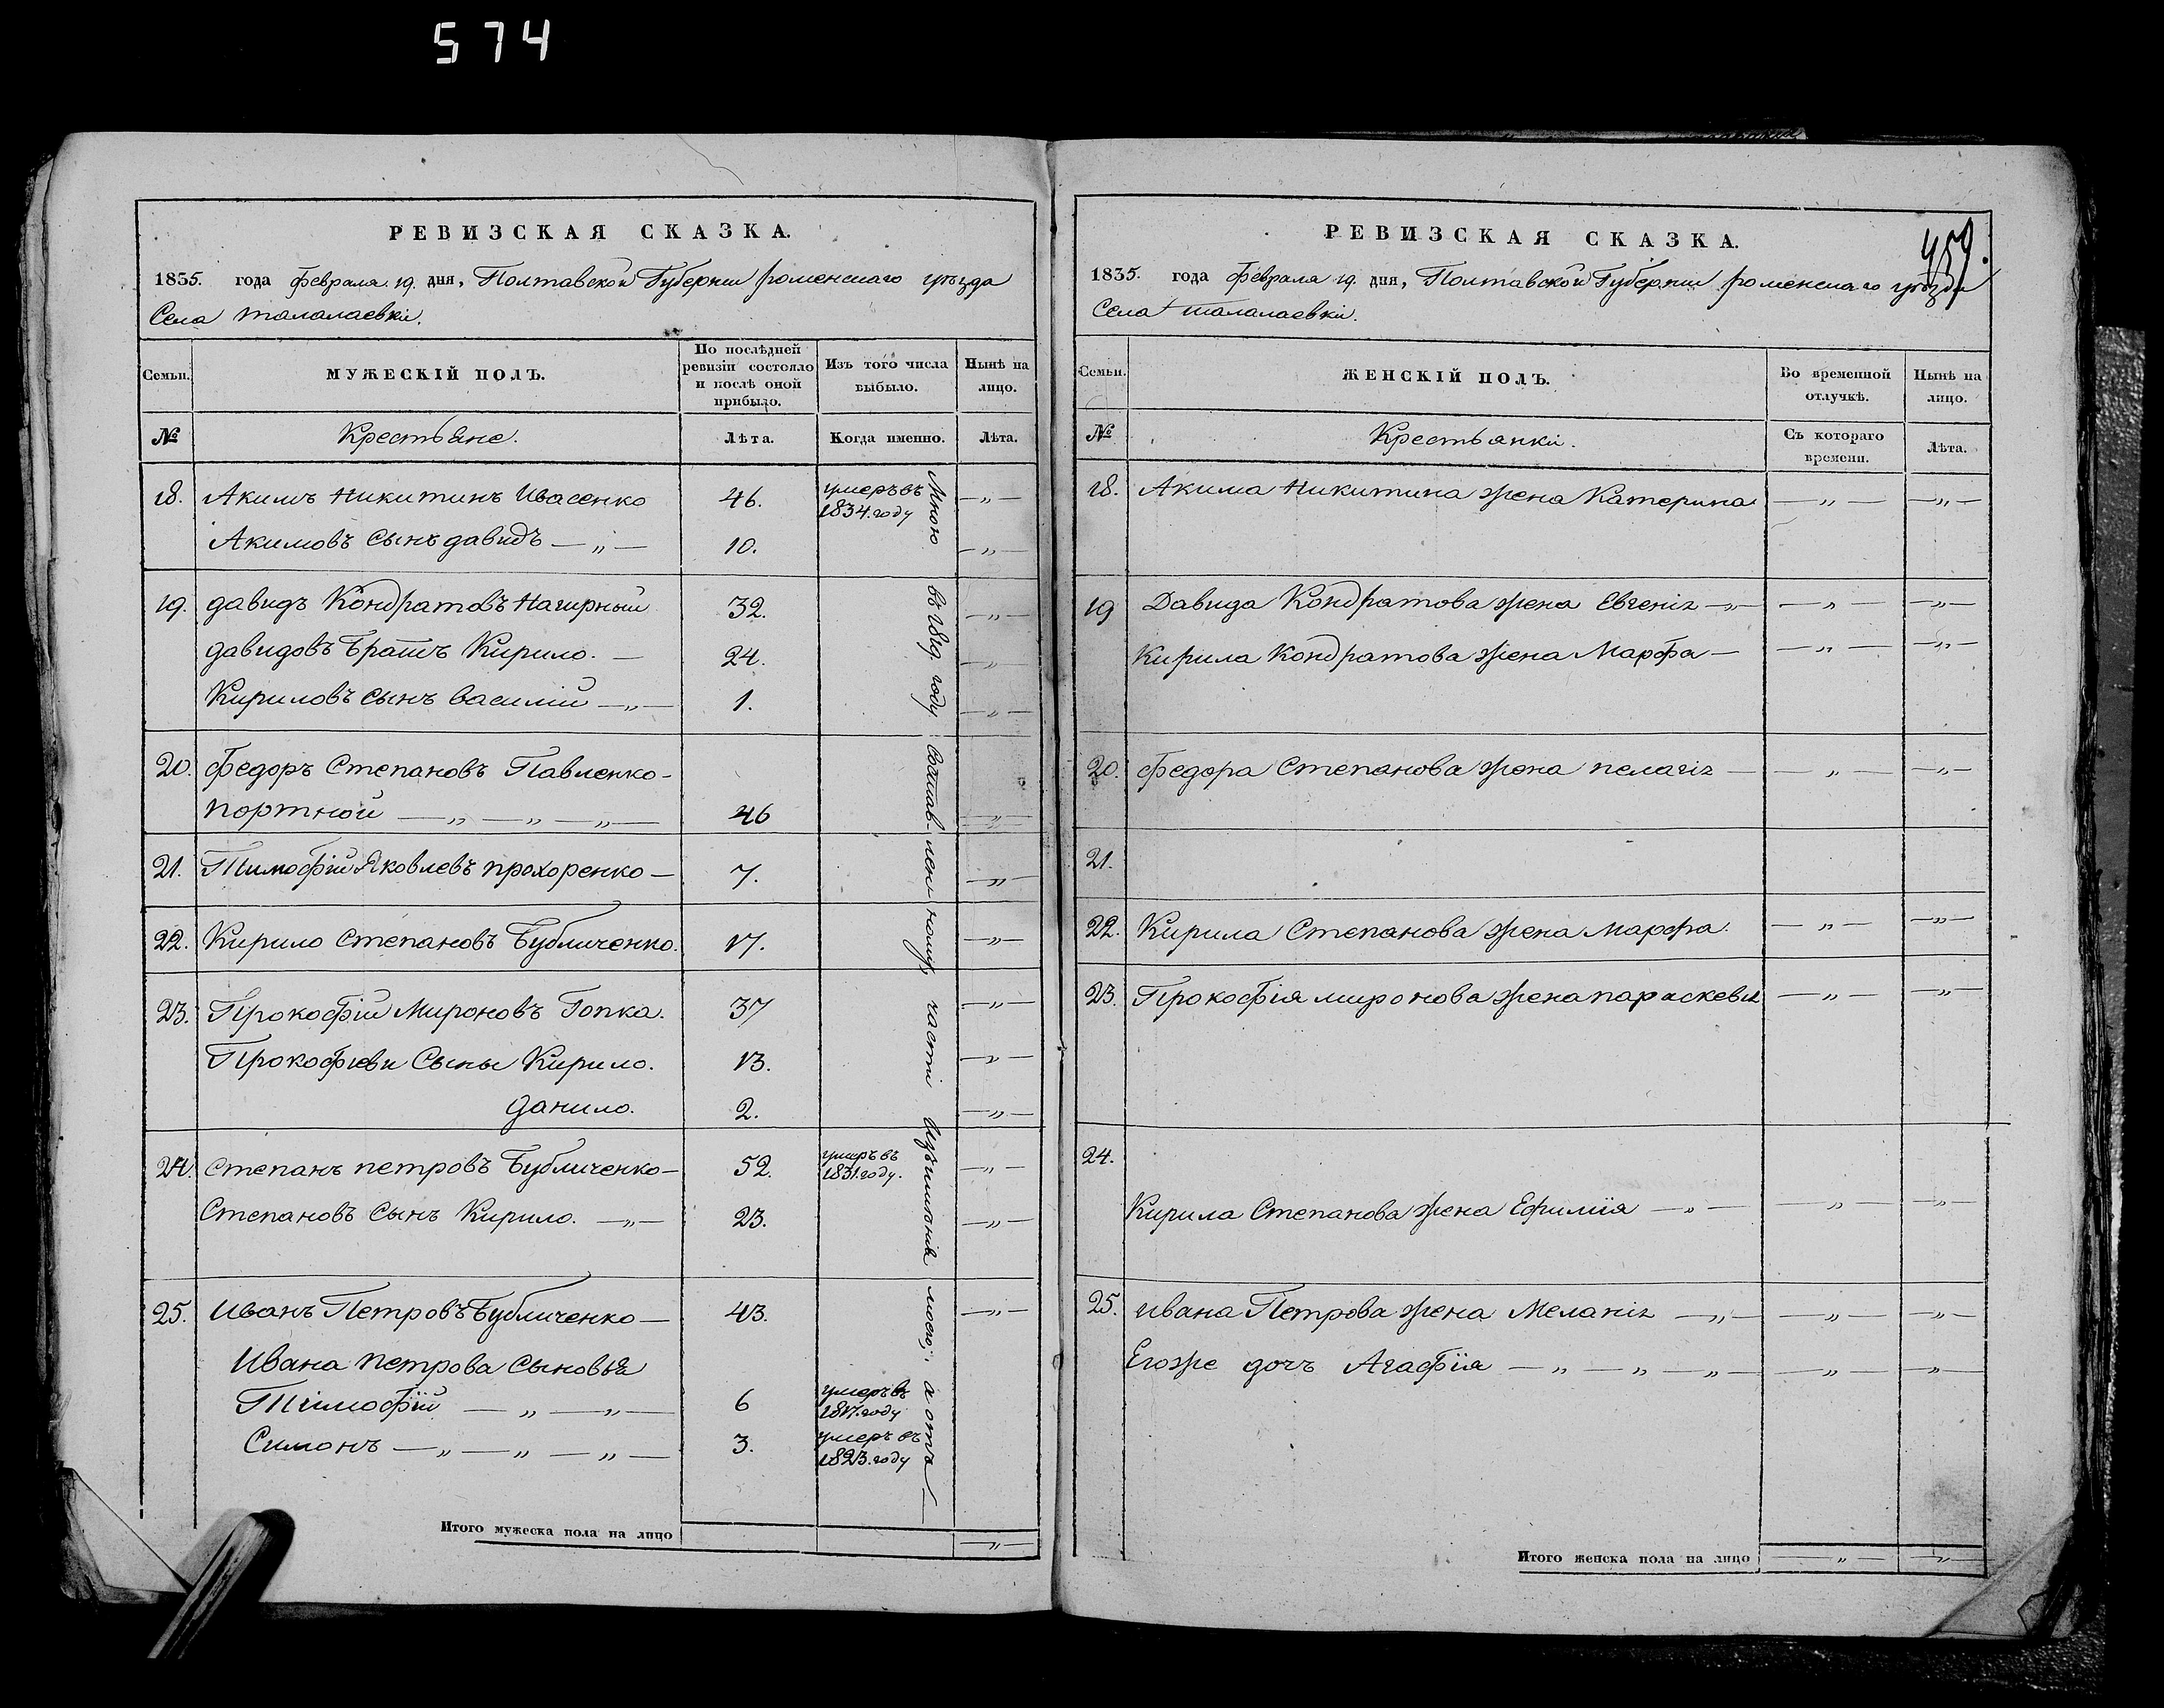 574
РЕВИЗСКАЯ СКАЗКА.
1835. года февраля 19. дня, Полтавской Губернии роменского уѣзда
Села талалаевки.
Семьи. МУЖЕСКІЙ ПОЛЪ. По послѣдней ревизіи состояло и послѣ оной прибыло. Изъ того числа выбыло. Нынѣ на лицо.
№ Крестьяне. Лѣта. Когда именно. Лѣта.
18. Акимъ Никитинъ Ивасенко 46. умеръ въ 1834. году — „ —
Акимовъ сынъ давидъ — „ — 10. — „ —
19. давидъ Кондратовъ Нагирный 32. — „ —
давидовъ Братъ Кирило. — 24. — „ —
Кириловъ сынъ василій — „ — 1. — „ —
20. федоръ Степановъ Павленко -
портной — „ — „ — „ — 46 — „ —
21. Тимофій Яковлевъ прохоренко — 7. — „ —
22. Кирило Степановъ Бубличенко. 17. — „ —
23. Прокофій Мироновъ Гопка. 37 — „ —
Прокофіеви Сыны Кирило. 13. — „ —
данило. 2. — „ —
24. Степанъ петровъ Бубличенко — 52. умеръ въ 1831. году. — „ —
Степановъ Сынъ Кирило. — „ — 23. — „ —
25. Иванъ Петровъ Бубличенко — 43. — „ —
Ивана петрова Сыновья
Тімофій — „ — „ — 6 умеръ въ 1817. году
Симонъ — „ — „ — „ — 3. умеръ въ 1823. году
Мною въ 1819. году части моею, а отъ
Итого мужеска пола на лицо — „ —
РЕВИЗСКАЯ СКАЗКА.
459.
1835. года февраля 19. дня, Полтавской Губернии роменскаго уѣзда
Села талалаевки.
Семьи. ЖЕНСКІЙ ПОЛЪ. Во временной отлучкѣ. Нынѣ на лицо.
№ Крестьянки. Съ котораго времени. Лѣта.
18. Акима Никитина жена Катерина — „ — — „ —
19 Давида Кондратова жена Евгенія — „ — — „ — — „ —
Кирила Кондратова жена Марфа — — „ — — „ —
20. федора Степанова жена пелагія — — „ — — „ —
21.
22. Кирила Степанова жена марфа. — „ — — „ —
23. Прокофія миронова жена параскевія — „ — — „ —
24.
Кирила Степанова жена Ефимія — „ — — „ — — „ —
25. ивана Петрова жена Меланія — „ — — „ — — „ —
Егоже дочъ Агафія — „ — „ — „ — — „ — — „ —
Итого женска пола на лицо — „ — — „ —